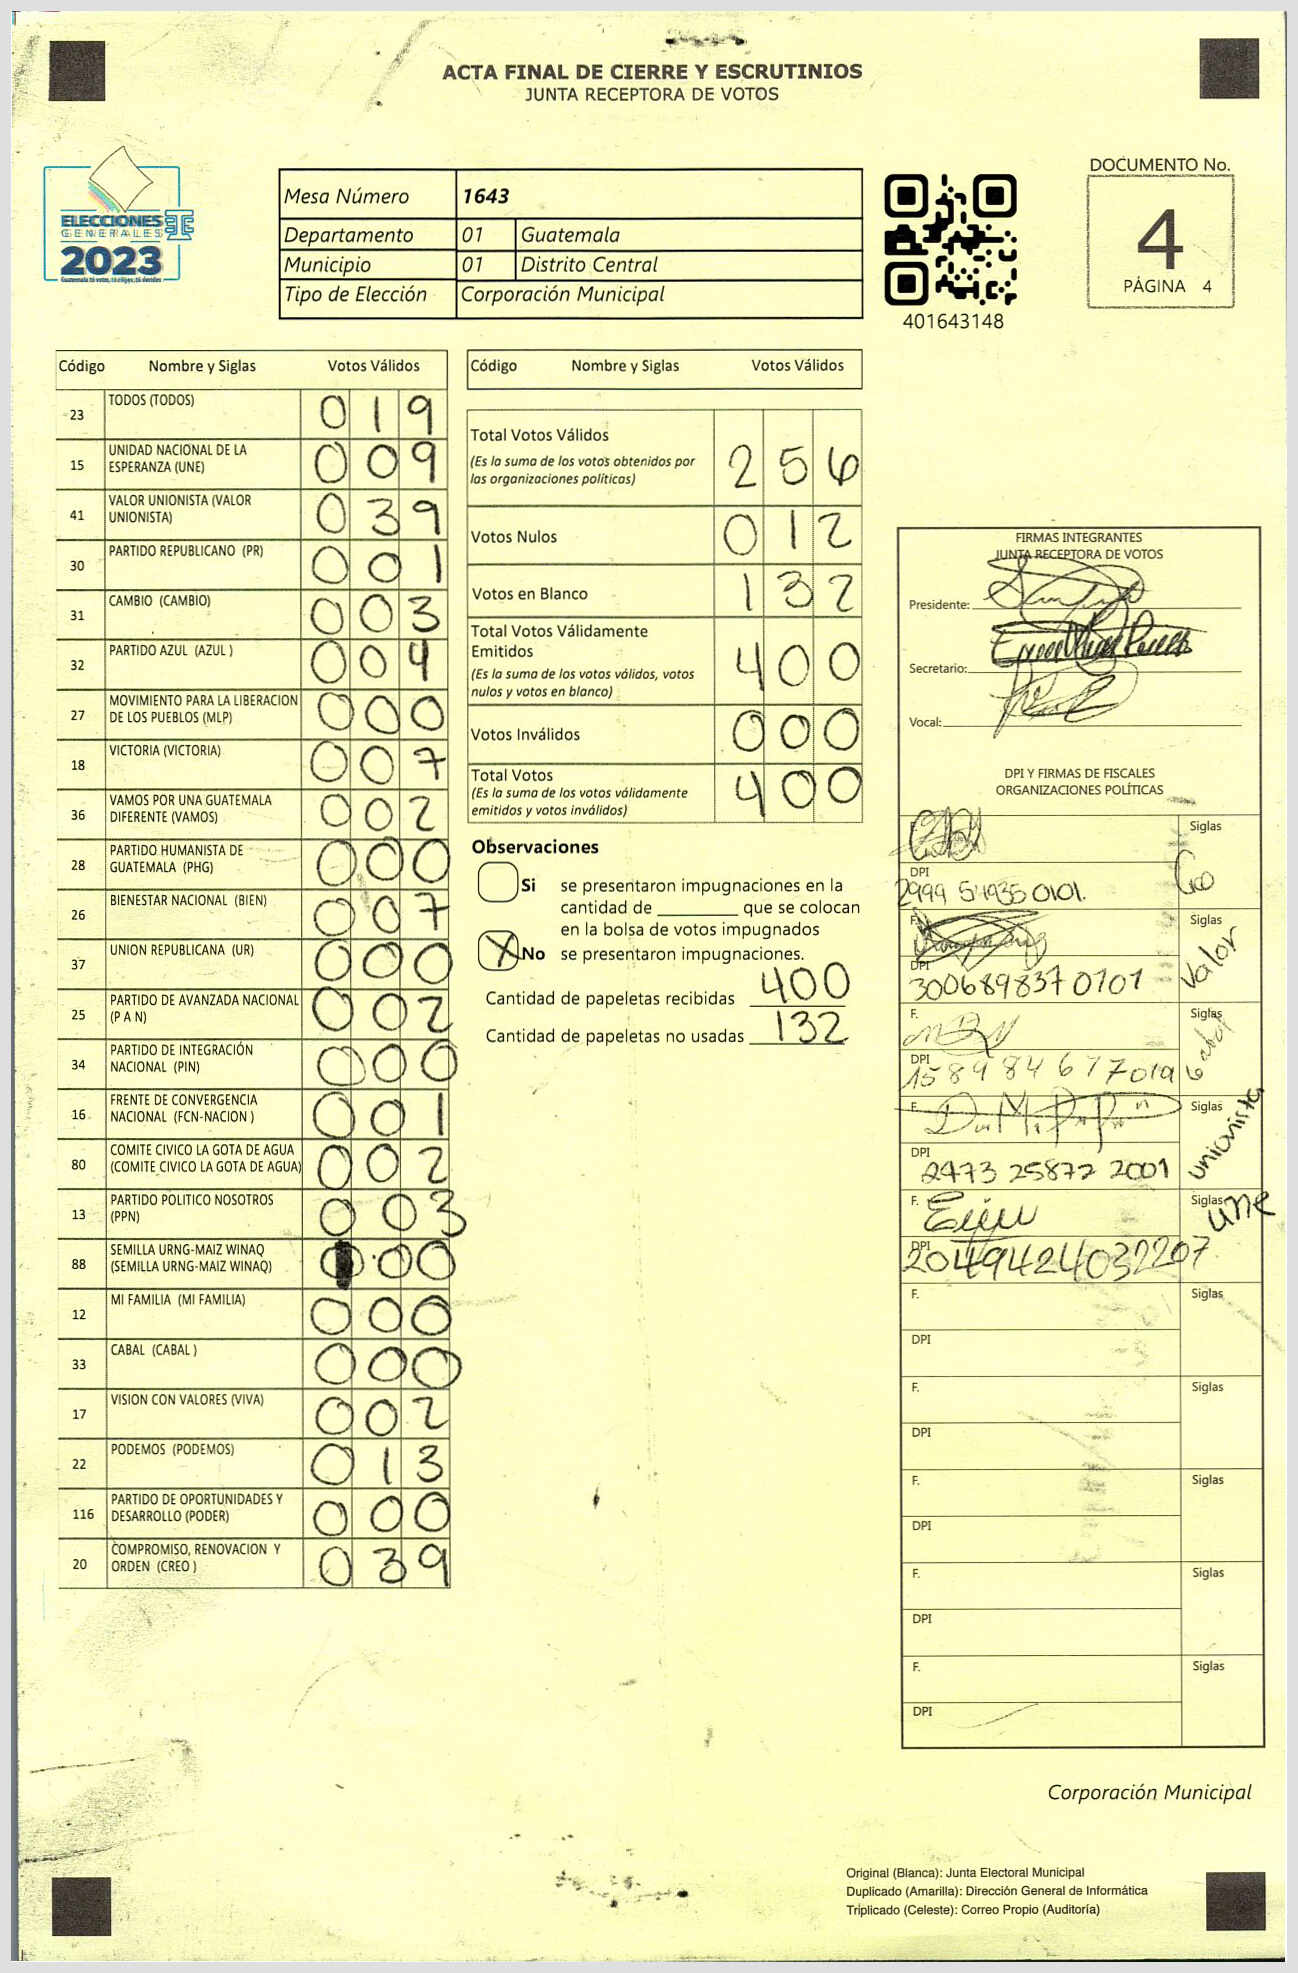 ACTA FINAL DE CIERRE Y ESCRUTINIOS
JUNTA RECEPTORA DE VOTOS
ELECCIONES
GENERALES
2023
Guatemala tú votas, tú eliges, tú decides
Mesa Número 1643
Departamento 01 Guatemala
Municipio 01 Distrito Central
Tipo de Elección Corporación Municipal
401643148
DOCUMENTO No.
4
PÁGINA 4
Código Nombre y Siglas Votos Válidos
23 TODOS (TODOS) 019
15 UNIDAD NACIONAL DE LA
ESPERANZA (UNE) 009
41 VALOR UNIONISTA (VALOR
UNIONISTA) 039
30 PARTIDO REPUBLICANO (PR) 001
31 CAMBIO (CAMBIO) 003
32 PARTIDO AZUL (AZUL ) 004
27 MOVIMIENTO PARA LA LIBERACION
DE LOS PUEBLOS (MLP) 000
18 VICTORIA (VICTORIA) 007
36 VAMOS POR UNA GUATEMALA
DIFERENTE (VAMOS) 002
28 PARTIDO HUMANISTA DE
GUATEMALA (PHG) 000
26 BIENESTAR NACIONAL (BIEN) 007
37 UNION REPUBLICANA (UR) 000
25 PARTIDO DE AVANZADA NACIONAL
(P A N) 002
34 PARTIDO DE INTEGRACIÓN
NACIONAL (PIN) 000
16 FRENTE DE CONVERGENCIA
NACIONAL (FCN-NACION ) 001
80 COMITE CIVICO LA GOTA DE AGUA
(COMITE CIVICO LA GOTA DE AGUA) 002
13 PARTIDO POLITICO NOSOTROS
(PPN) 003
88 SEMILLA URNG-MAIZ WINAQ
(SEMILLA URNG-MAIZ WINAQ) 000
12 MI FAMILIA (MI FAMILIA) 000
33 CABAL (CABAL ) 000
17 VISION CON VALORES (VIVA) 002
22 PODEMOS (PODEMOS) 013
116 PARTIDO DE OPORTUNIDADES Y
DESARROLLO (PODER) 000
20 COMPROMISO, RENOVACION Y
ORDEN (CREO ) 039
Código Nombre y Siglas Votos Válidos
Total Votos Válidos
(Es la suma de los votos obtenidos por
las organizaciones políticas) 256
Votos Nulos 012
Votos en Blanco 132
Total Votos Válidamente
Emitidos
(Es la suma de los votos válidos, votos
nulos y votos en blanco) 400
Votos Inválidos 000
Total Votos
(Es la suma de los votos válidamente
emitidos y votos inválidos) 400
Observaciones
Si se presentaron impugnaciones en la
cantidad de ________ que se colocan
en la bolsa de votos impugnados
X No se presentaron impugnaciones.
Cantidad de papeletas recibidas 400
Cantidad de papeletas no usadas 132
FIRMAS INTEGRANTES
JUNTA RECEPTORA DE VOTOS
Presidente:
Secretario:
Vocal:
DPI Y FIRMAS DE FISCALES
ORGANIZACIONES POLÍTICAS
F. Siglas
DPI
2999 54935 0101.
F. Siglas Valor
DPI
300689837 0101
F. Siglas
DPI
F. Siglas unionista
DPI
2473 25872 2001
F. Siglas une
DPI
2049424032207
F. Siglas
DPI
F. Siglas
DPI
F. Siglas
DPI
F. Siglas
DPI
F. Siglas
DPI
Corporación Municipal
Original (Blanca): Junta Electoral Municipal
Duplicado (Amarilla): Dirección General de Informática
Triplicado (Celeste): Correo Propio (Auditoría)